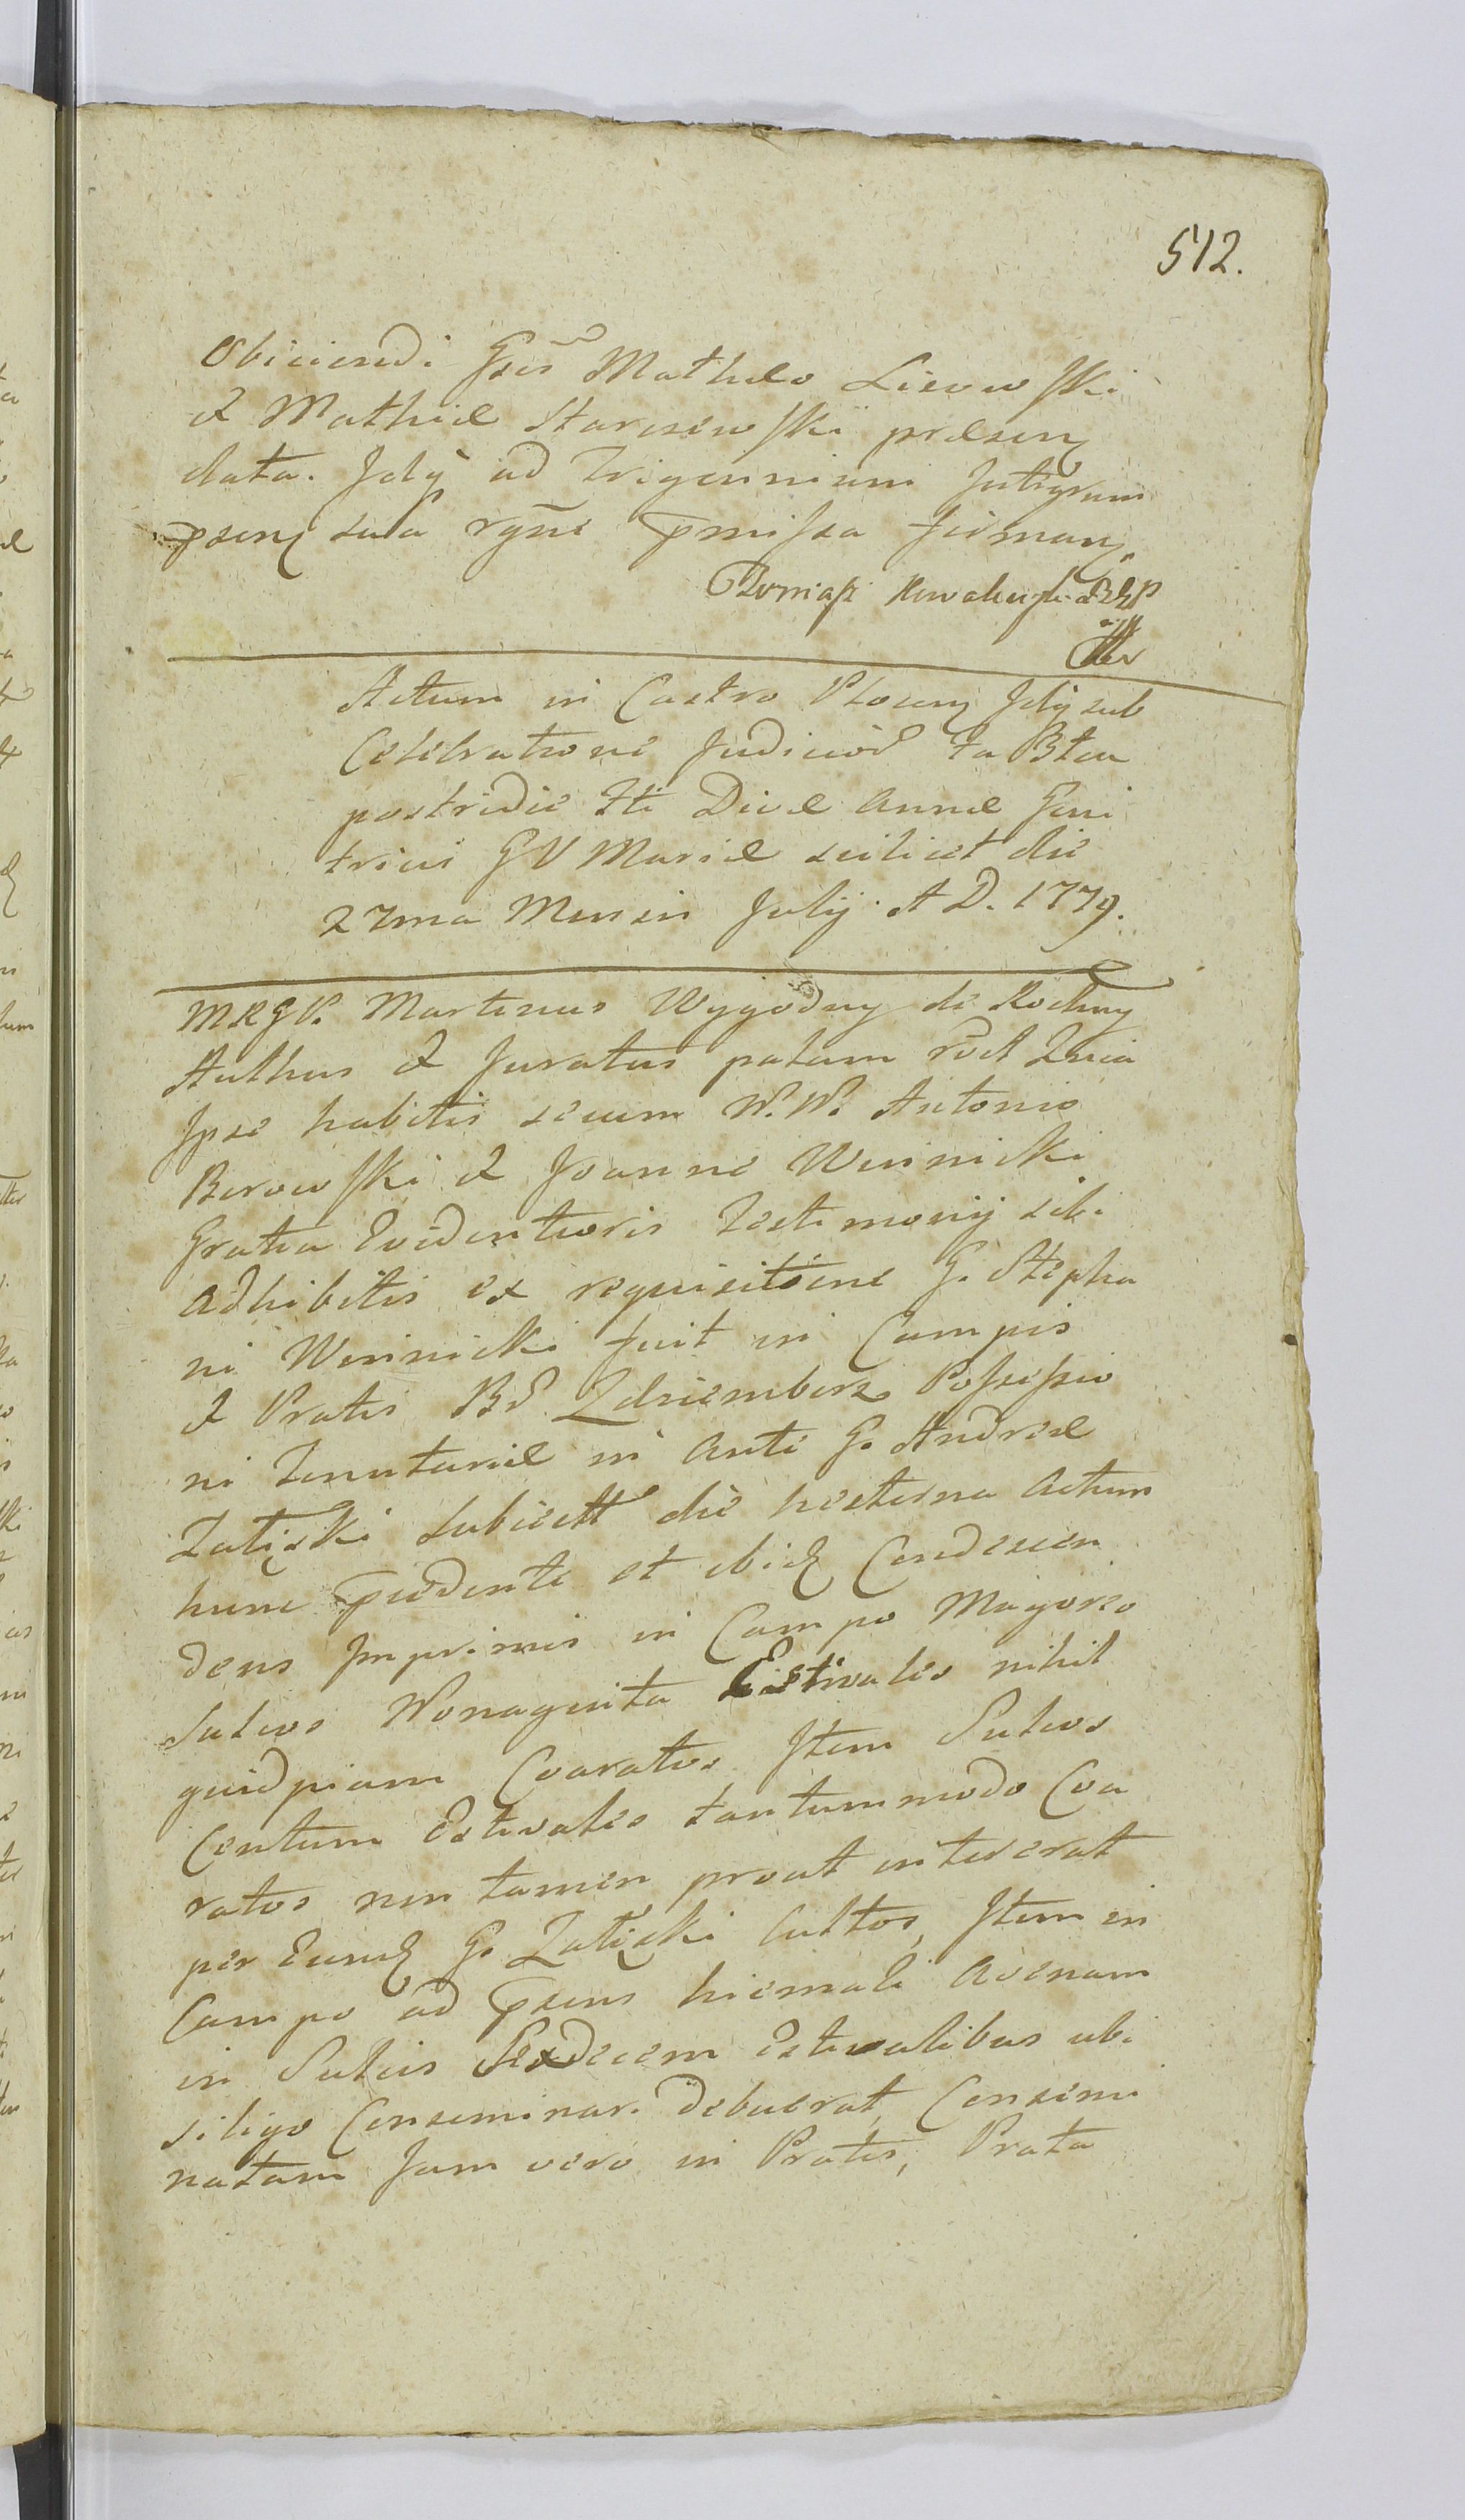 512.
Obiiciendi Gsis Mathaeo Lisowski
& Mathiae Staroszewski praesenq
data. Jdq ad Trigennium Jntegrum
psenq sua rgne pmissa firmanq.
Actum in Castro Plocenq fdq sub
Celebratione Judicior
postridie fti Divae Annae Geni
tricis GV Mariae scilicet die
27ma Mensis Julij A D. 1779.
MRGV. Martinus Wygodny de Rochny
Authus & Juratus palam
Jpse habitis secum W. W. Antonio
Borowski & Joanne Winnicki
Gratia Evidentioris Testimonij sibi
adhibitis ex requisitione G. Stepha
ni Winnicki fuit in Campis
& Pratis Bd. Zdziemborz Possessio
ni Tenutariae in Anti G. Andreae
Zaliski subiectt die hesterna Actum
hunc pcedente et ibidq Condescen
dens Jmprimis in Campo Magorzo
Sulcos Nonaginta Estivales nihil
quidpiam Coaratos Jtem Sulcos
Centum Estivales tantummodo Coa
ratos non tamen prout intererat
per Eundq G. Zaliski Cultos, Jtem in
Campo ad psens hiemali Avenam
in Sulcis Sexdecem Estivalibus ubi
siligo Conseminari debuerat, Consemi
natam Jam vero in Pratis, Prata